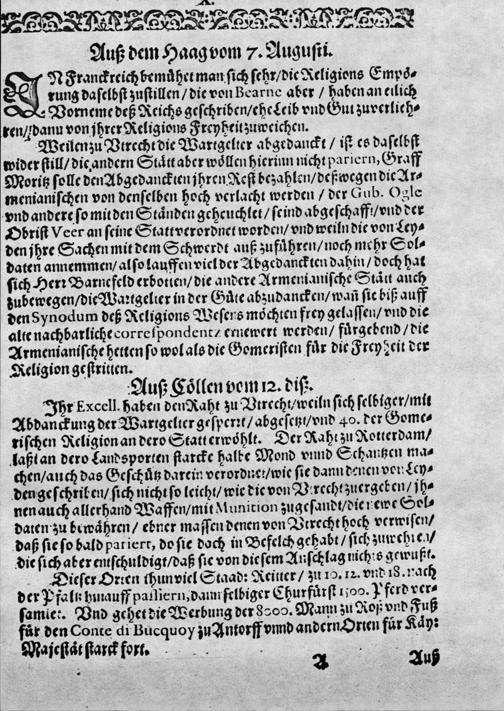 X.
Auß dem Haag vom 7. Augusti.
IN Franckreich bemühet man sich sehr/die Religions Empö-
rung daselbst zustillen/die von Bearne aber/haben an etlich
Vorneme deß Reichs geschriben/ehe Leib vnd Gut zuverlieh-
ren/dann von jhrer Religions Freyheit zuweichen.
Weilen zu Vtrecht die Wartgelter abgedanckt/ist es daselbst
wider still/die andern Stätt aber wöllen hierinn nicht pariern, Graff
Moritz solle den Abgedanckten jhren Rest bezahlen/deßwegen die Ar-
menianischen von denselben hoch verlacht werden/der Gub. Ogle
vnd andere so mit den Ständen geheuchlet/seind abgeschafft/vnd der
Obrist Veer an seine Statt verordnet worden/vnd weiln die von Ley-
den jhre Sachen mit dem Schwerdt auß zuführen/noch mehr Sol-
daten annemmen/also lauffen viel der Abgedanckten dahin/doch hat
sich Herr Barnefeld erbotten/die andere Armenianische Stätt auch
zubewegen/die Wartgelter in der Güte abzudancken/wañ sie biß auff
den Synodum deß Religions Wesens möchten frey gelassen/vnd die
alte nachbarliche correspondentz ernewert werden/fürgebend/die
Armenianische hetten so wol als die Gomeristen für die Freyheit der
Religion gestritten.
Auß Cöllen vom 12. diß.
Ihr Excell. haben den Raht zu Vtrecht/weiln sich selbiger/mit
Abdanckung der Wartgelter gesperrt/abgesetzt/vnd 40. der Gome-
rischen Religion an dero Statt erwöhlt. Der Raht zu Rotterdam/
laßt an dero Landsporten starcke halbe Mond vnnd Schantzen ma-
chen/auch das Geschütz darein verordnet/wie sie dann denen von Ley-
den geschriben/sich nicht so leicht/wie die von Vtrecht zuergeben/jh-
nen auch allerhand Waffen/mit Munition zugesandt/die newe Sol-
daten zu bewähren/ebner massen denen von Vtrecht hoch verwisen/
daß sie so bald pariert, do sie doch in Befelch gehabt/sich zuwehren/
die sich aber entschuldigt/daß sie von diesem Anschlag nichts gewußt.
Dieser Orten thun viel Staad: Reitter/zu 10. 12. vnd 18. nach
der Pfaltz hinauff passiern, dann selbiger Churfürst 1500. Pferd ver-
samlet. Vnd gehet die Werbung der 8000. Mann zu Roß vnd Fuß
für den Conte di Bucquoy zu Antorff vnnd andern Orten für Käy:
Majestät starck fort.
A Auß